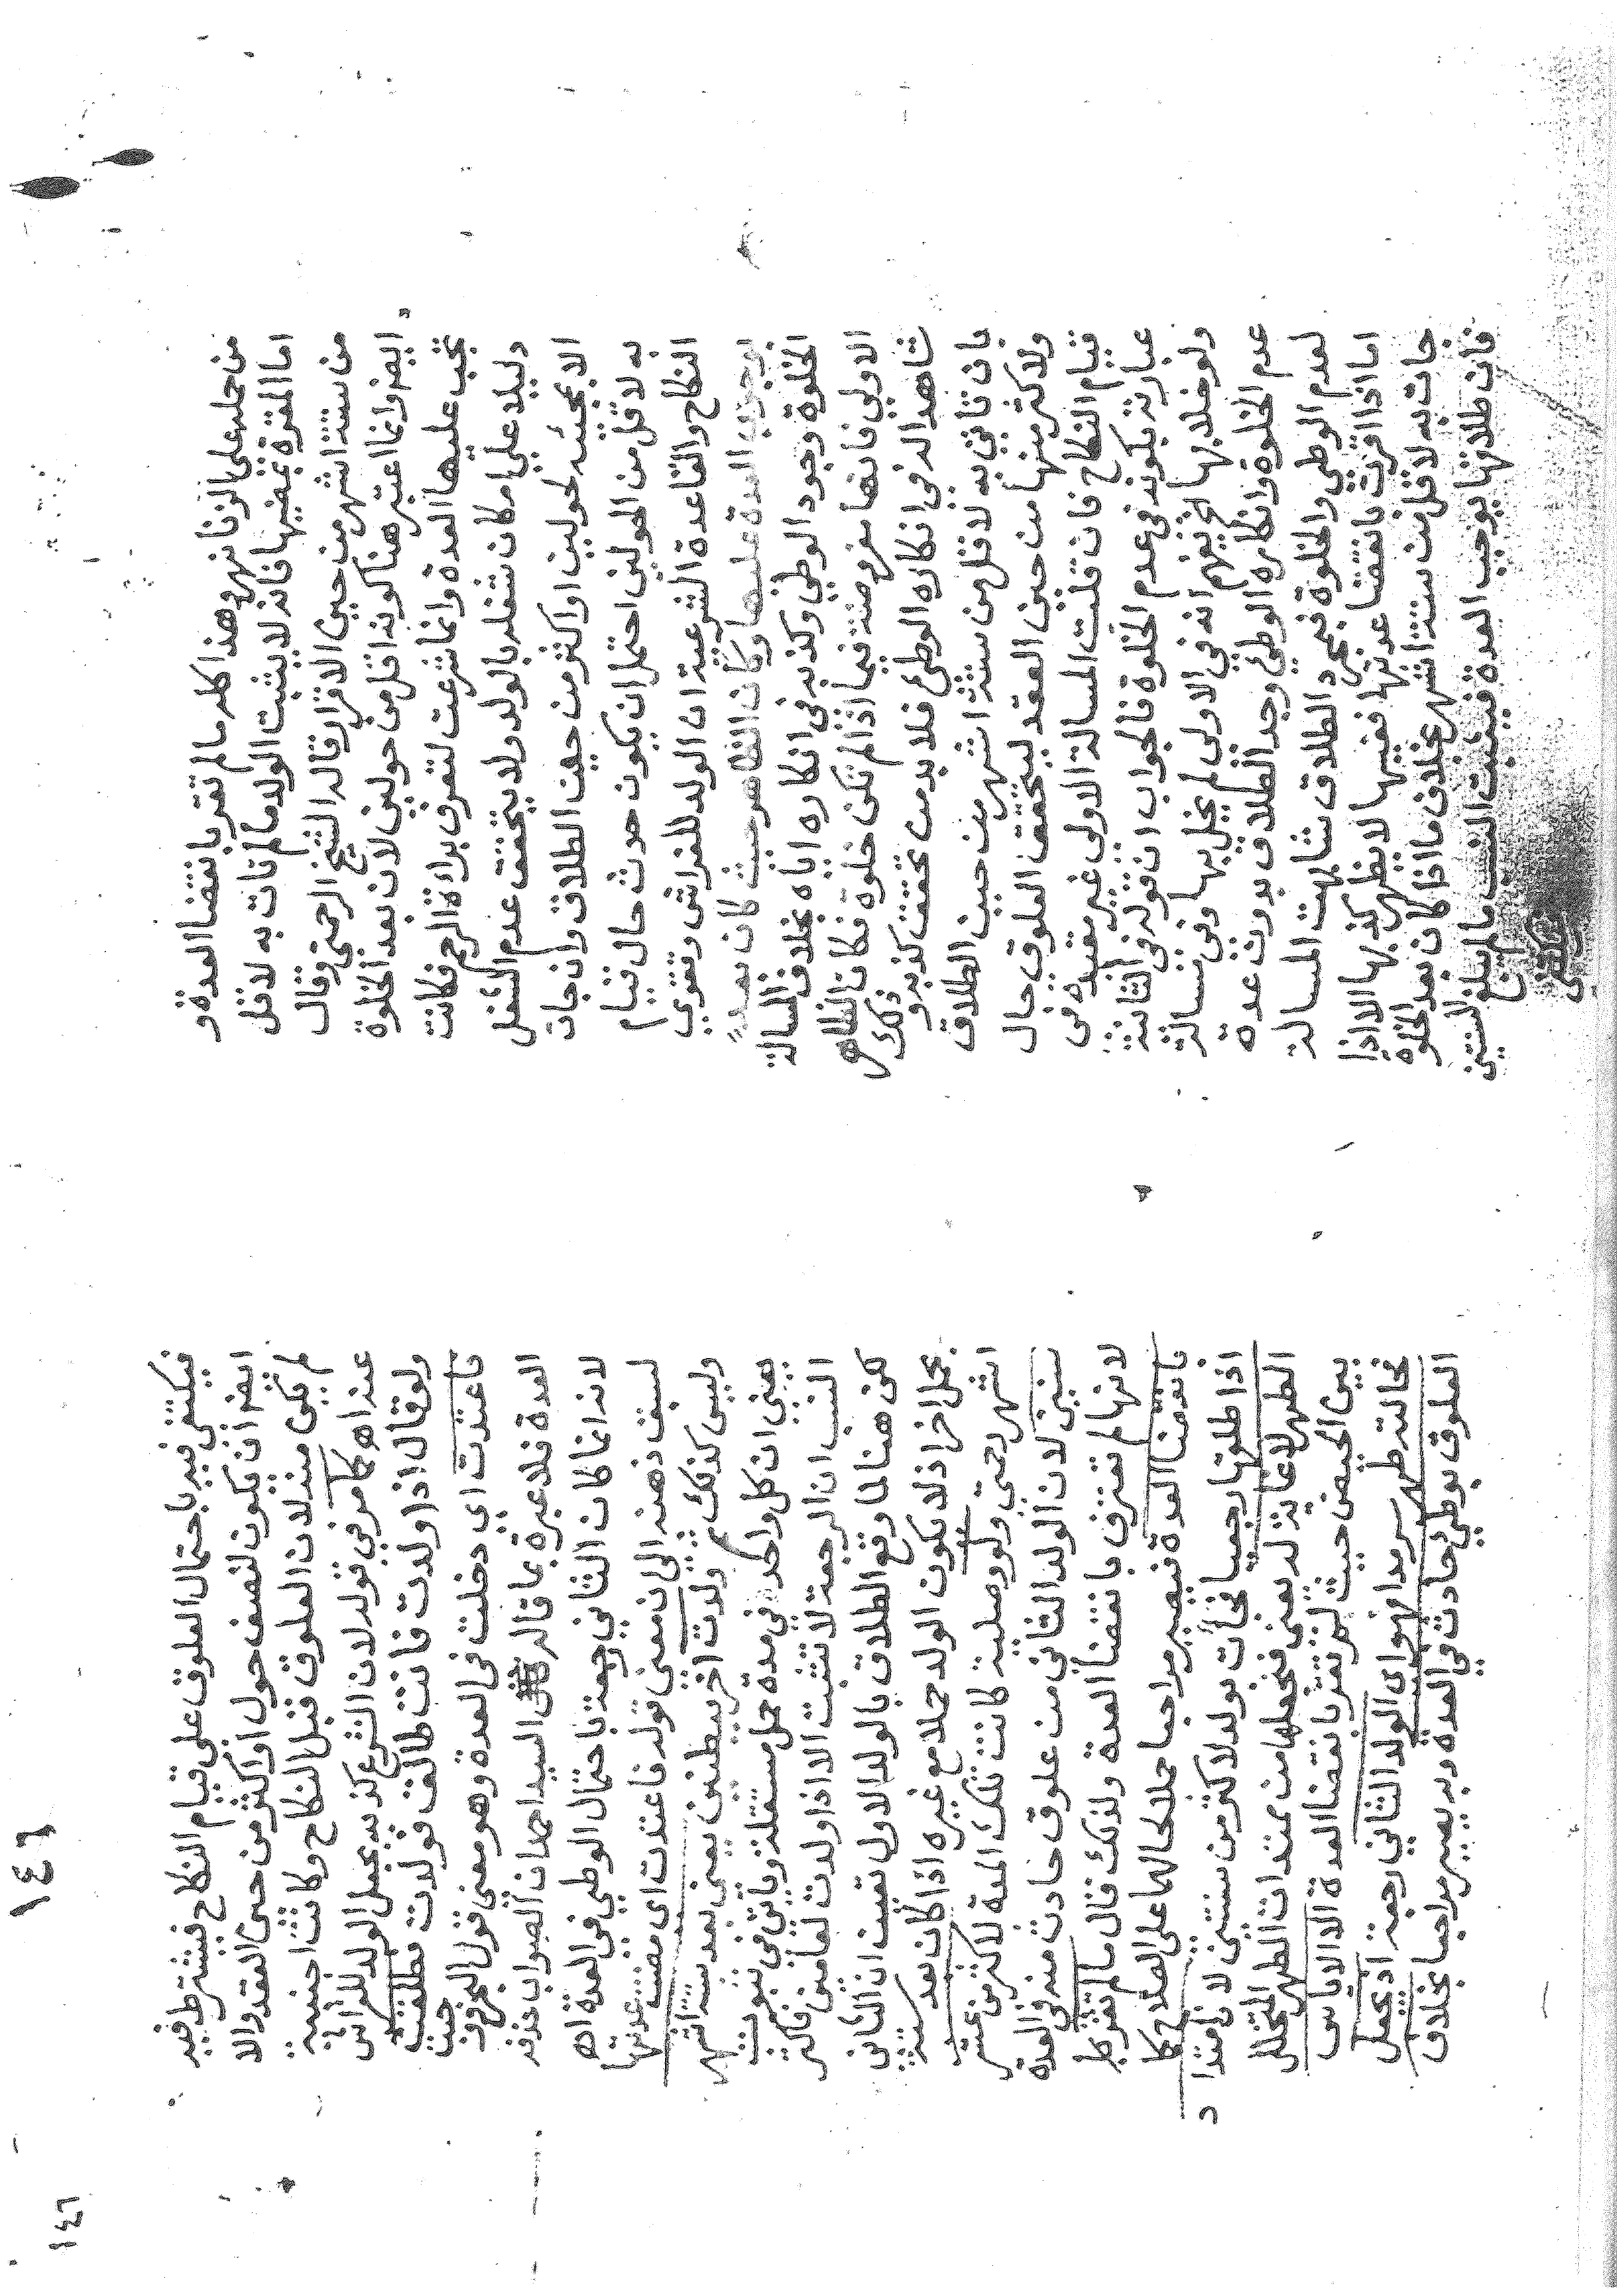 من حمله على الزنا نهر وهذا كله ما لم تقر بانقضا العدة و
اما المقرة بمضيها فانه لا يثبت الولد ما لم تات به لاقل
من ستة اشهر من حين الاقرار قاله الشيخ الرحمتي وقال
ايضا وانما اعتبر هنا كونه اقل من حولين لان بعد الخلوة
تجب عليها العدة وانما شرعت لتعرف براءة الرحم فكانت
دليلا على امكان شغله بالولد ولا يتحقق عدم الشغل
الا بمجيئه لحولين او اكثر من حين الطلاق وان جات
به لاقل من الحولين احتمل ان يكون حدث حال قيام
النكاح والقاعدة الشرعية ان الولد للفراش وتقوي
بوجوب العدة عليها وكان الظاهر حيث كان بعد
الخلوة وجود الوطي وكذبه في انكاره اياه بخلاف المسالة
الاولى فانها مفروضة فيما اذا لم تكن خلوة فكان الظاهر
شاهدا له في انكاره الوطي فلا بد من تحقق كذبه وذلك
بان تاتي به لاقل من ستة اشهر من حين الطلاق
ولاكثر منها من حين العقد ليتحقق العلوق حال
قيام النكاح فان قلت المسالة الاولى غير مقيدة في
عبارته بكونه في عدم الخلوة فالجواب ان قوله في الثانية
ولو خلا بها الخ يفهم انه في الاولى لم يخل بها وفي مسالة
عدم الخلوة وانكاره الوطي وجد الطلاق بدون عدة
لعدم الوطي والخلوة فبمجرد الطلاق شابهت المسالة
اما اذا اقرت بانقضا عدتها ففيها لا يظهر كذبها الا اذا
جات به لاقل من ستة اشهر بخلاف ما اذا كان بعد الخلوة
فان طلاقها يوجب العدة فيثبت النسب ما لم يبلغ السنتين
فيكتفى
فيكتفى فيه باحتمال العلوق على قيام النكاح فيشترط فيه
ايضا ان يكون لنصف حول او اكثر من حين العقد والا
لم يكن منه لان العلوق قبل النكاح وكانت اجنبية
عنه اه كما مر في قوله لان الشرع كذبه بجعل الولد للفراش
ولو قال اذا ولدت فانت طالق فولدت فطلقت
فاعتدت اي دخلت في العدة وهو معنى قول البحر وجبت
العدة فلا عبرة بما قاله السيد احمد ان الصواب حذفه
لانه انما كان الثاني رجعة باحتمال الوطي في العدة اه
لسبق ذهنه الى ان معنى قوله فاعتدت اي مضت عدتها
وليس كذلك ثم ولدت اخر ببطنين يعني بعد ستة اشهر
يعني ان كل واحد في مدة حمل مستقلة وياتي في ثبوت
النسب ان الرجعة لا تثبت الا اذا ولدت لعامين فاكثر
لكن هنا لما وقع الطلاق بالولد الاول تعين ان الثاني
بحمل اخر اذ لا يكون الولد حملا مع غيره اذا كان بعد ستة
اشهر رحمتي ولو وصلية كانت تلك المدة لاكثر من عشر
سنين لان الولد الثاني من علوق حادث منه في العدة
لانها لم تعترف بانقضا العدة ولذلك قال ما لم تقر
بانقضا العدة فيصير مراجعا حملا لحالهما على الصلاح كما
اذا طلقها رجعيا فجأت بولد لاكثر من سنتين لان امتداد
الطهر لا غاية له يعني فنجعلها من ممتدات الطهر المتخلل
بين الحيض حيث لم تقر بانقضا العدة الا الاياس
فحالته طهر سرمدا نهر اي الولد الثاني رجعة اذ يجعل
العلوق بوطي حادث في العدة وبه يصير مراجعا بخلاف
١٤٦
١٤٦